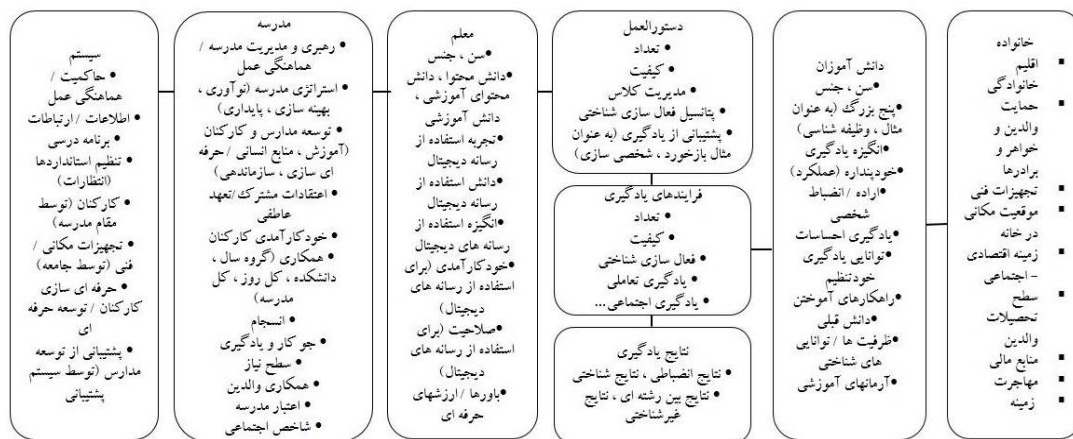 خانواده
اقلیم
خانوادگی
حمایت
والدین و
خواهر و
برادرها
تجهیزات فنی
موقعیت مکانی
در خانه
زمینه اقتصادی
- اجتماعی
سطح
تحصیلات
والدین
منابع مالی
مهاجرت
زمینه
دانش آموزان
• سن ، جنس
• پنج بزرگ (به عنوان
مثال ، وظیفه شناسی)
• انگیزه یادگیری
• خودپنداره (عملکرد)
• اراده / انضباط
شخصی
• یادگیری احساسات
• توانایی یادگیری
خودتنظیم
• راهکارهای آموختن
• دانش قبلی
• ظرفیت ها / توانایی
های شناختی
• آرمانهای آموزشی
دستورالعمل
• تعداد
• کیفیت
• مدیریت کلاس
• پتانسیل فعال سازی شناختی
• پشتیبانی از یادگیری (به عنوان
مثال بازخورد ، شخصی سازی)
فرایندهای یادگیری
• تعداد
• کیفیت
• فعال سازی شناختی
• یادگیری تعاملی
• یادگیری اجتماعی...
نتایج یادگیری
• نتایج انضباطی ، نتایج شناختی
• نتایج بین رشته ای ، نتایج
غیرشناختی
معلم
• سن ، جنس
• دانش محتوا ، دانش
محتوای آموزشی ،
دانش آموزشی
• تجربه استفاده از
رسانه دیجیتال
• دانش استفاده از
رسانه دیجیتال
• انگیزه استفاده از
رسانه های دیجیتال
• خودکارآمدی (برای
استفاده از رسانه های
دیجیتال)
• صلاحیت (برای
استفاده از رسانه های
دیجیتال)
• باورها / ارزشهای
حرفه ای
مدرسه
• رهبری و مدیریت مدرسه /
هماهنگی عمل
• استراتژی مدرسه (نوآوری ،
بهینه سازی ، پایداری)
• توسعه مدارس و کارکنان
(آموزش ، منابع انسانی / حرفه
ای سازی ، سازماندهی)
• اعتقادات مشترک / تعهد
عاطفی
• خودکارآمدی کارکنان
• همکاری (گروه سال ،
دانشکده ، کل روز ، کل
مدرسه)
• انسجام
• جو کار و یادگیری
• سطح نیاز
• همکاری والدین
• اعتبار مدرسه
• شاخص اجتماعی
سیستم
• حاکمیت /
هماهنگی عمل
• اطلاعات / ارتباطات
• برنامه درسی
• تنظیم استانداردها
(انتظارات)
• کارکنان (توسط
مقام مدرسه)
• تجهیزات مکانی /
فنی (توسط جامعه)
• حرفه ای سازی
کارکنان / توسعه حرفه
ای
• پشتیبانی از توسعه
مدارس (توسط سیستم
پشتیبانی